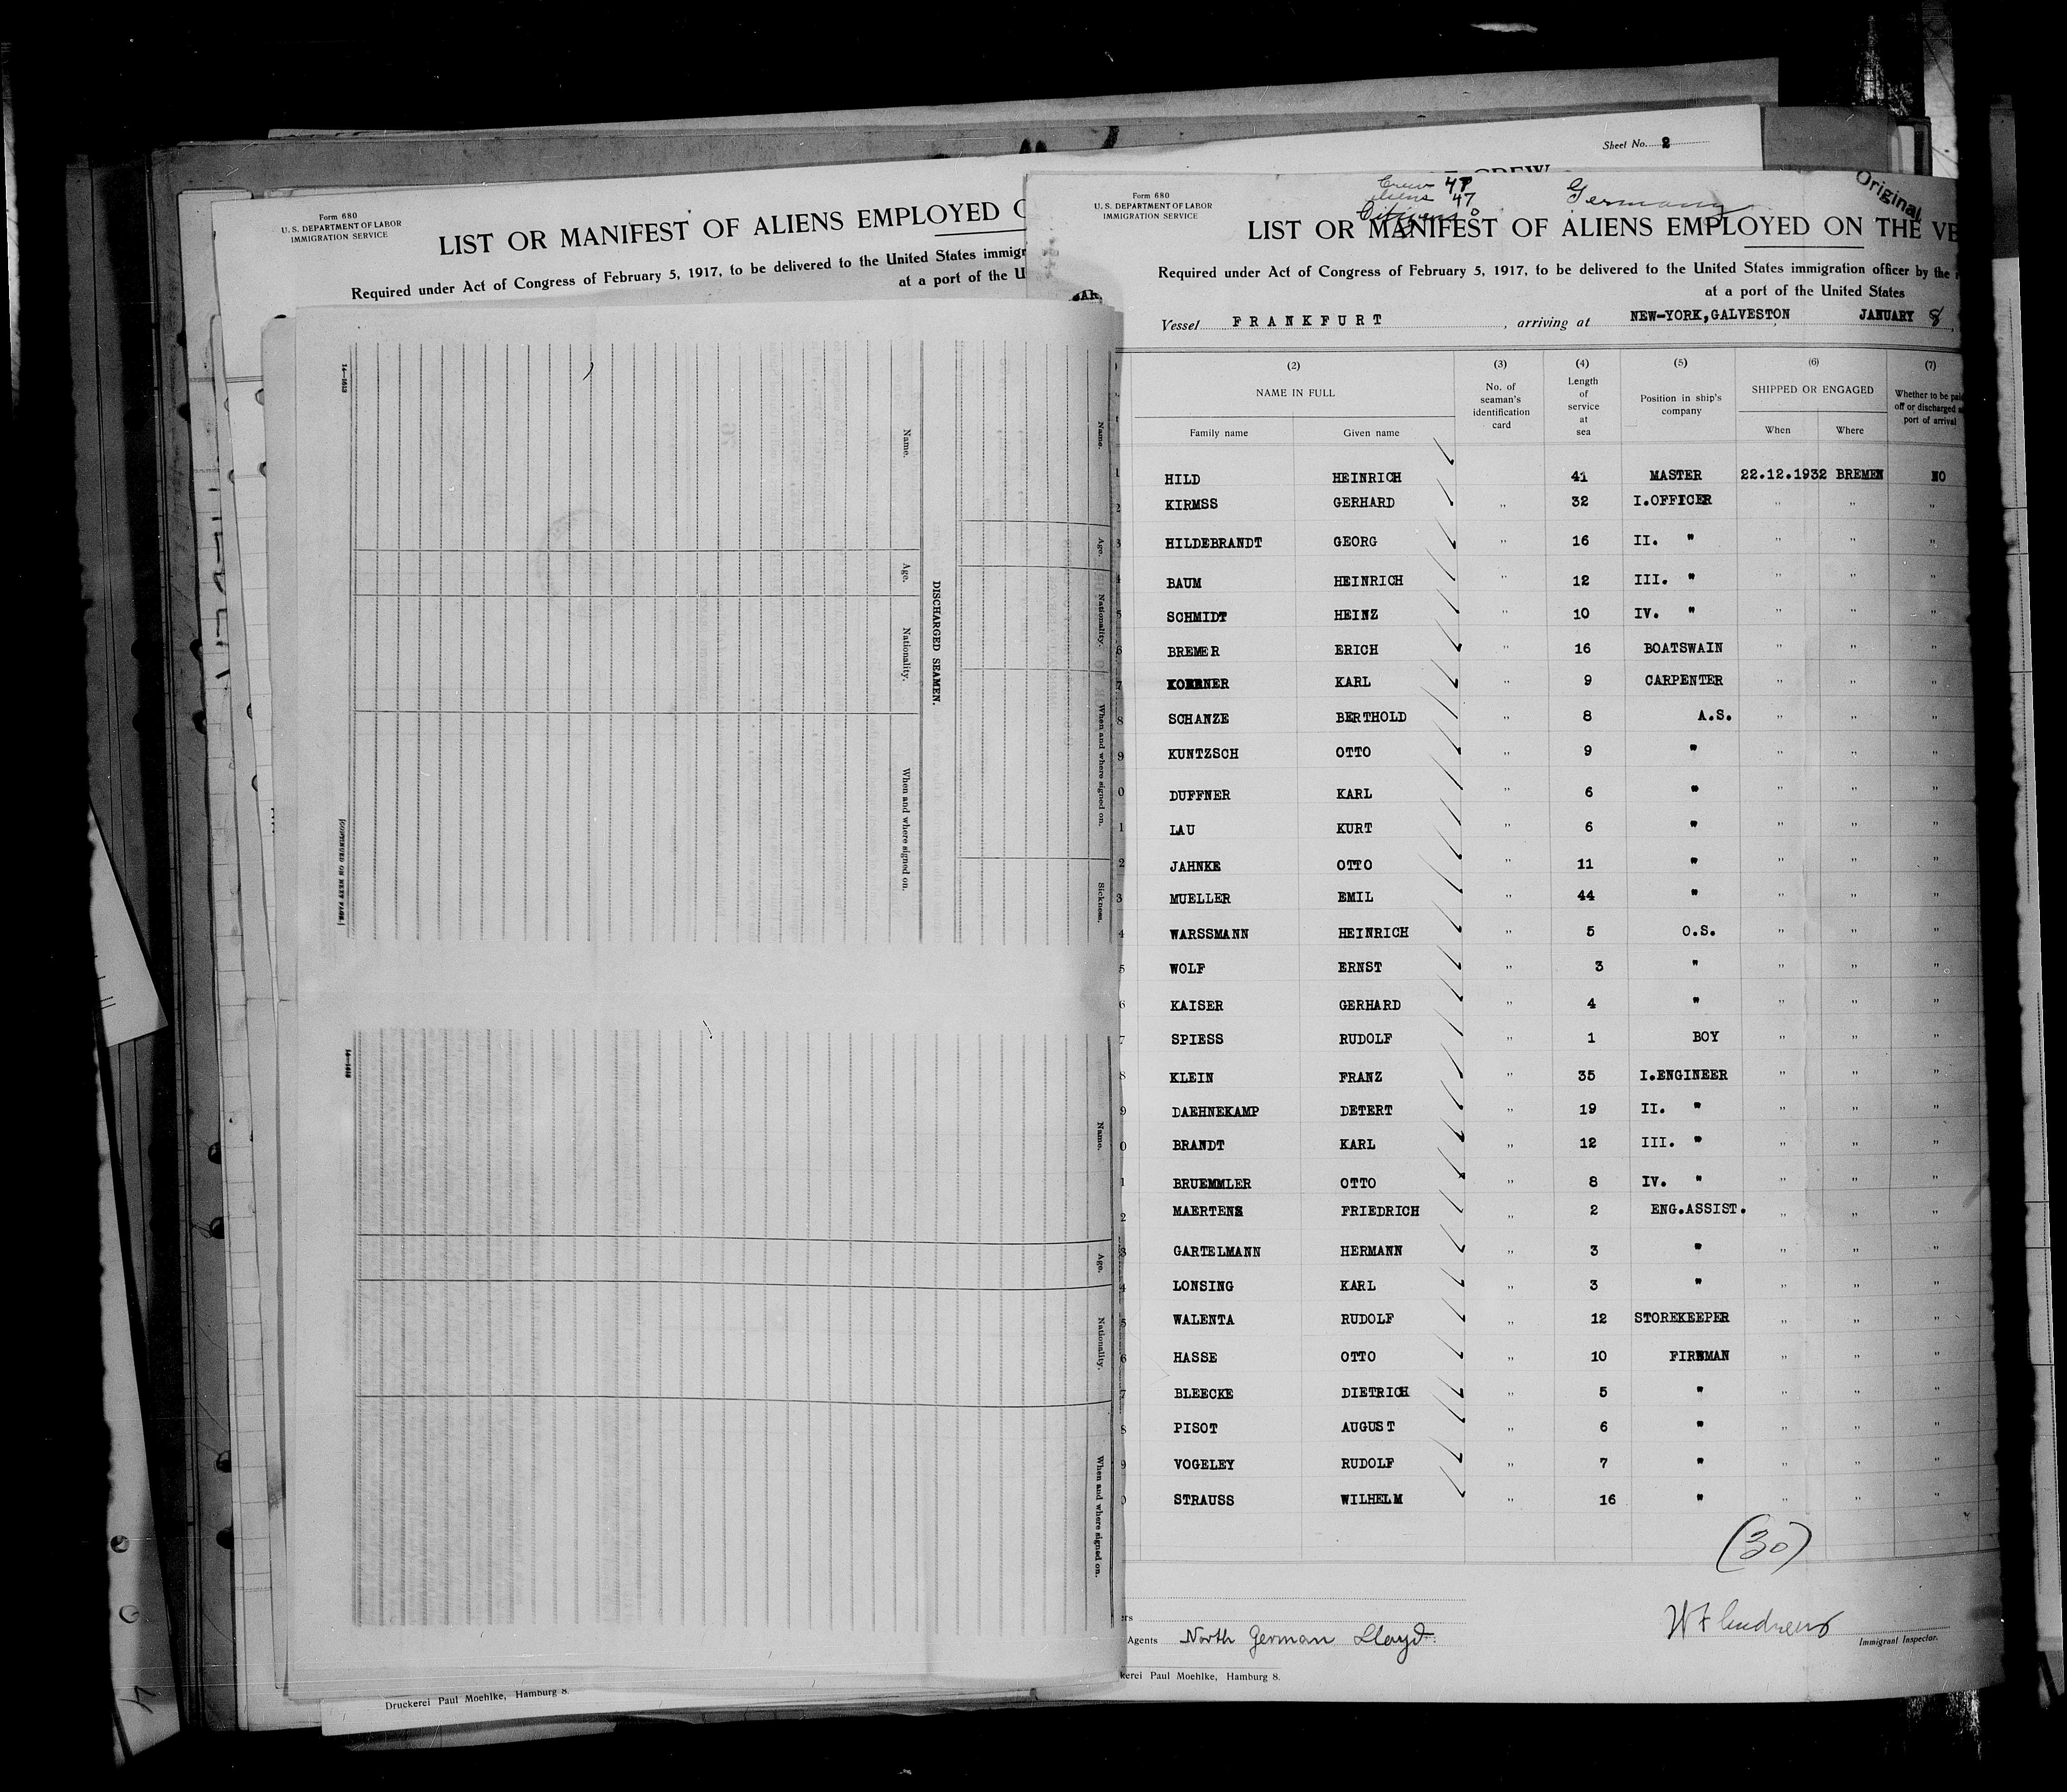 Sheet No. 2
Form 680
U. S. DEPARTMENT OF LABOR
IMMIGRATION SERVICE
LIST OR MANIFEST OF ALIENS EMPLOYED
Required under Act of Congress of February 5, 1917, to be delivered to the United States immigr
at a port of the U
14—1613
Name.
Age.
Nationality.
When and where signed on.
DISCHARGED SEAMEN.
Name.
Age.
Nationality.
When and where signed on.
Sickness.
[CONTINUED ON NEXT PAGE.]
Name.
Age.
Nationality.
When and where signed on.
Druckerei Paul Moehlke, Hamburg 8.
Form 680
U. S. DEPARTMENT OF LABOR
IMMIGRATION SERVICE
Crew 47
Aliens 47
Citizens 0
Germany
Original
LIST OR MANIFEST OF ALIENS EMPLOYED ON THE VE
Required under Act of Congress of February 5, 1917, to be delivered to the United States immigration officer by the
at a port of the United States
Vessel FRANKFURT, arriving at NEW-YORK,GALVESTON JANUARY 8,
(2) (3) (4) (5) (6) (7)
NAME IN FULL No. of seaman's identification card Length of service at sea Position in ship's company SHIPPED OR ENGAGED Whether to be paid off or discharged at port of arrival
Family name Given name When Where
HILD HEINRICH 41 MASTER 22.12.1932 BREMEN NO
KIRMSS GERHARD " 32 I.OFFICER " " "
HILDEBRANDT GEORG " 16 II. " " " "
BAUM HEINRICH " 12 III. " " " "
SCHMIDT HEINZ " 10 IV. " " " "
BREMER ERICH " 16 BOATSWAIN " " "
KOERNER KARL " 9 CARPENTER " " "
SCHANZE BERTHOLD " 8 A.S. " " "
KUNTZSCH OTTO " 9 " " " "
DUFFNER KARL " 6 " " " "
LAU KURT " 6 " " " "
JAHNKE OTTO " 11 " " " "
MUELLER EMIL " 44 " " " "
WARSSMANN HEINRICH " 5 O.S. " " "
WOLF ERNST " 3 " " " "
KAISER GERHARD " 4 " " " "
SPIESS RUDOLF " 1 BOY " " "
KLEIN FRANZ " 35 I.ENGINEER " " "
DAEHNEKAMP DETERT " 19 II. " " " "
BRANDT KARL " 12 III. " " " "
BRUEMMLER OTTO " 8 IV. " " " "
MAERTENS FRIEDRICH " 2 ENG.ASSIST. " " "
GARTELMANN HERMANN " 3 " " " "
LONSING KARL " 3 " " " "
WALENTA RUDOLF " 12 STOREKEEPER " " "
HASSE OTTO " 10 FIREMAN " " "
BLEECKE DIETRICH " 5 " " " "
PISOT AUGUST " 6 " " " "
VOGELEY RUDOLF " 7 " " " "
STRAUSS WILHELM " 16 " " " "
(30)
Agents North German Lloyd
W F Andrews
Immigrant Inspector.
kerei Paul Moehlke, Hamburg 8.